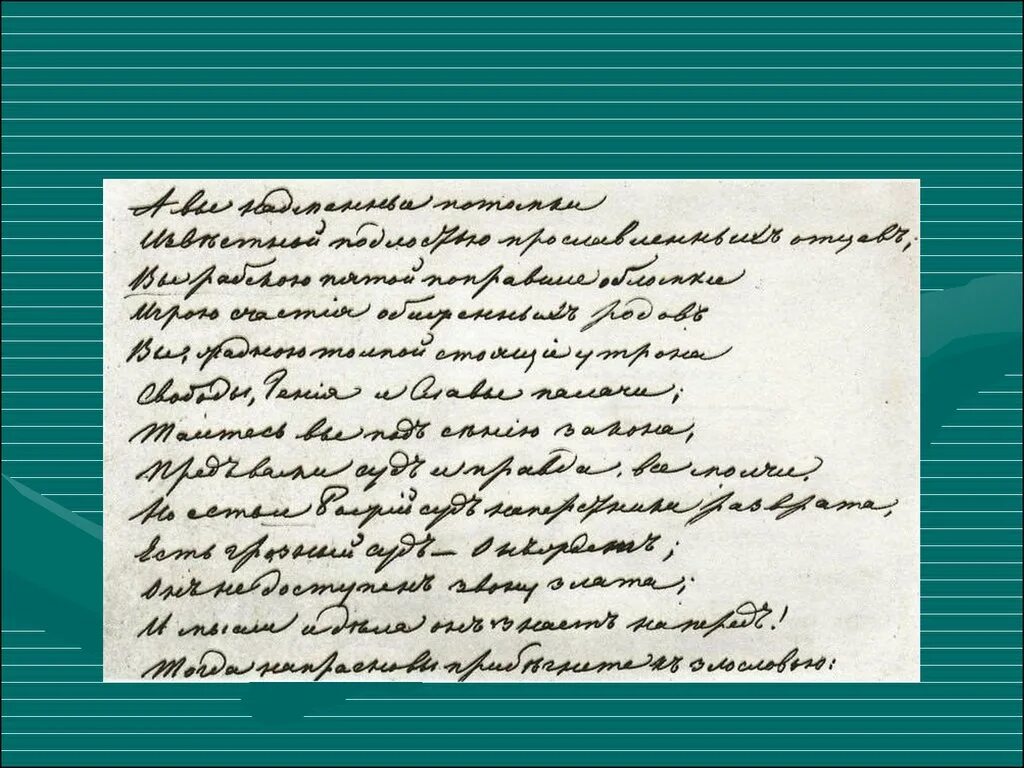 А вы надменные потомки
Извѣстной подлостью прославленныхъ отцовъ;
Вы рабскою пятой поправшие обломки
Игрою счастія обиженныхъ родовъ
Вы, жадною толпой стоящіе у трона
Свободы, Генія и Славы палачи;
Таитесь вы подъ сѣнію закона,
Предъ вами судъ и правда, все молчи.
Но есть и Божій судъ наперсники разврата,
Есть грозный судъ — Онъ ждетъ;
Онъ не доступенъ звону злата;
И мысли и дѣла онъ знаетъ напередъ!
Тогда напрасно вы прибѣгнете къ злословью: